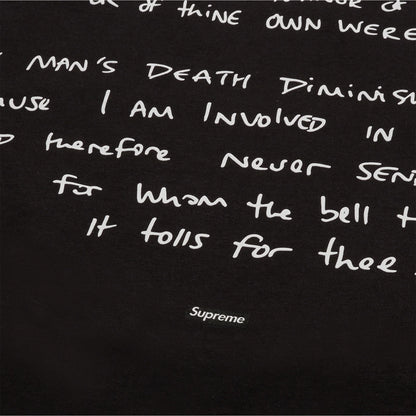 OF THINE OWN WERE
MAN'S DEATH DIMINIS
I AM INVOLVED IN
therefore NEVER SEN
for whom the bell t
It tolls for thee
Supreme